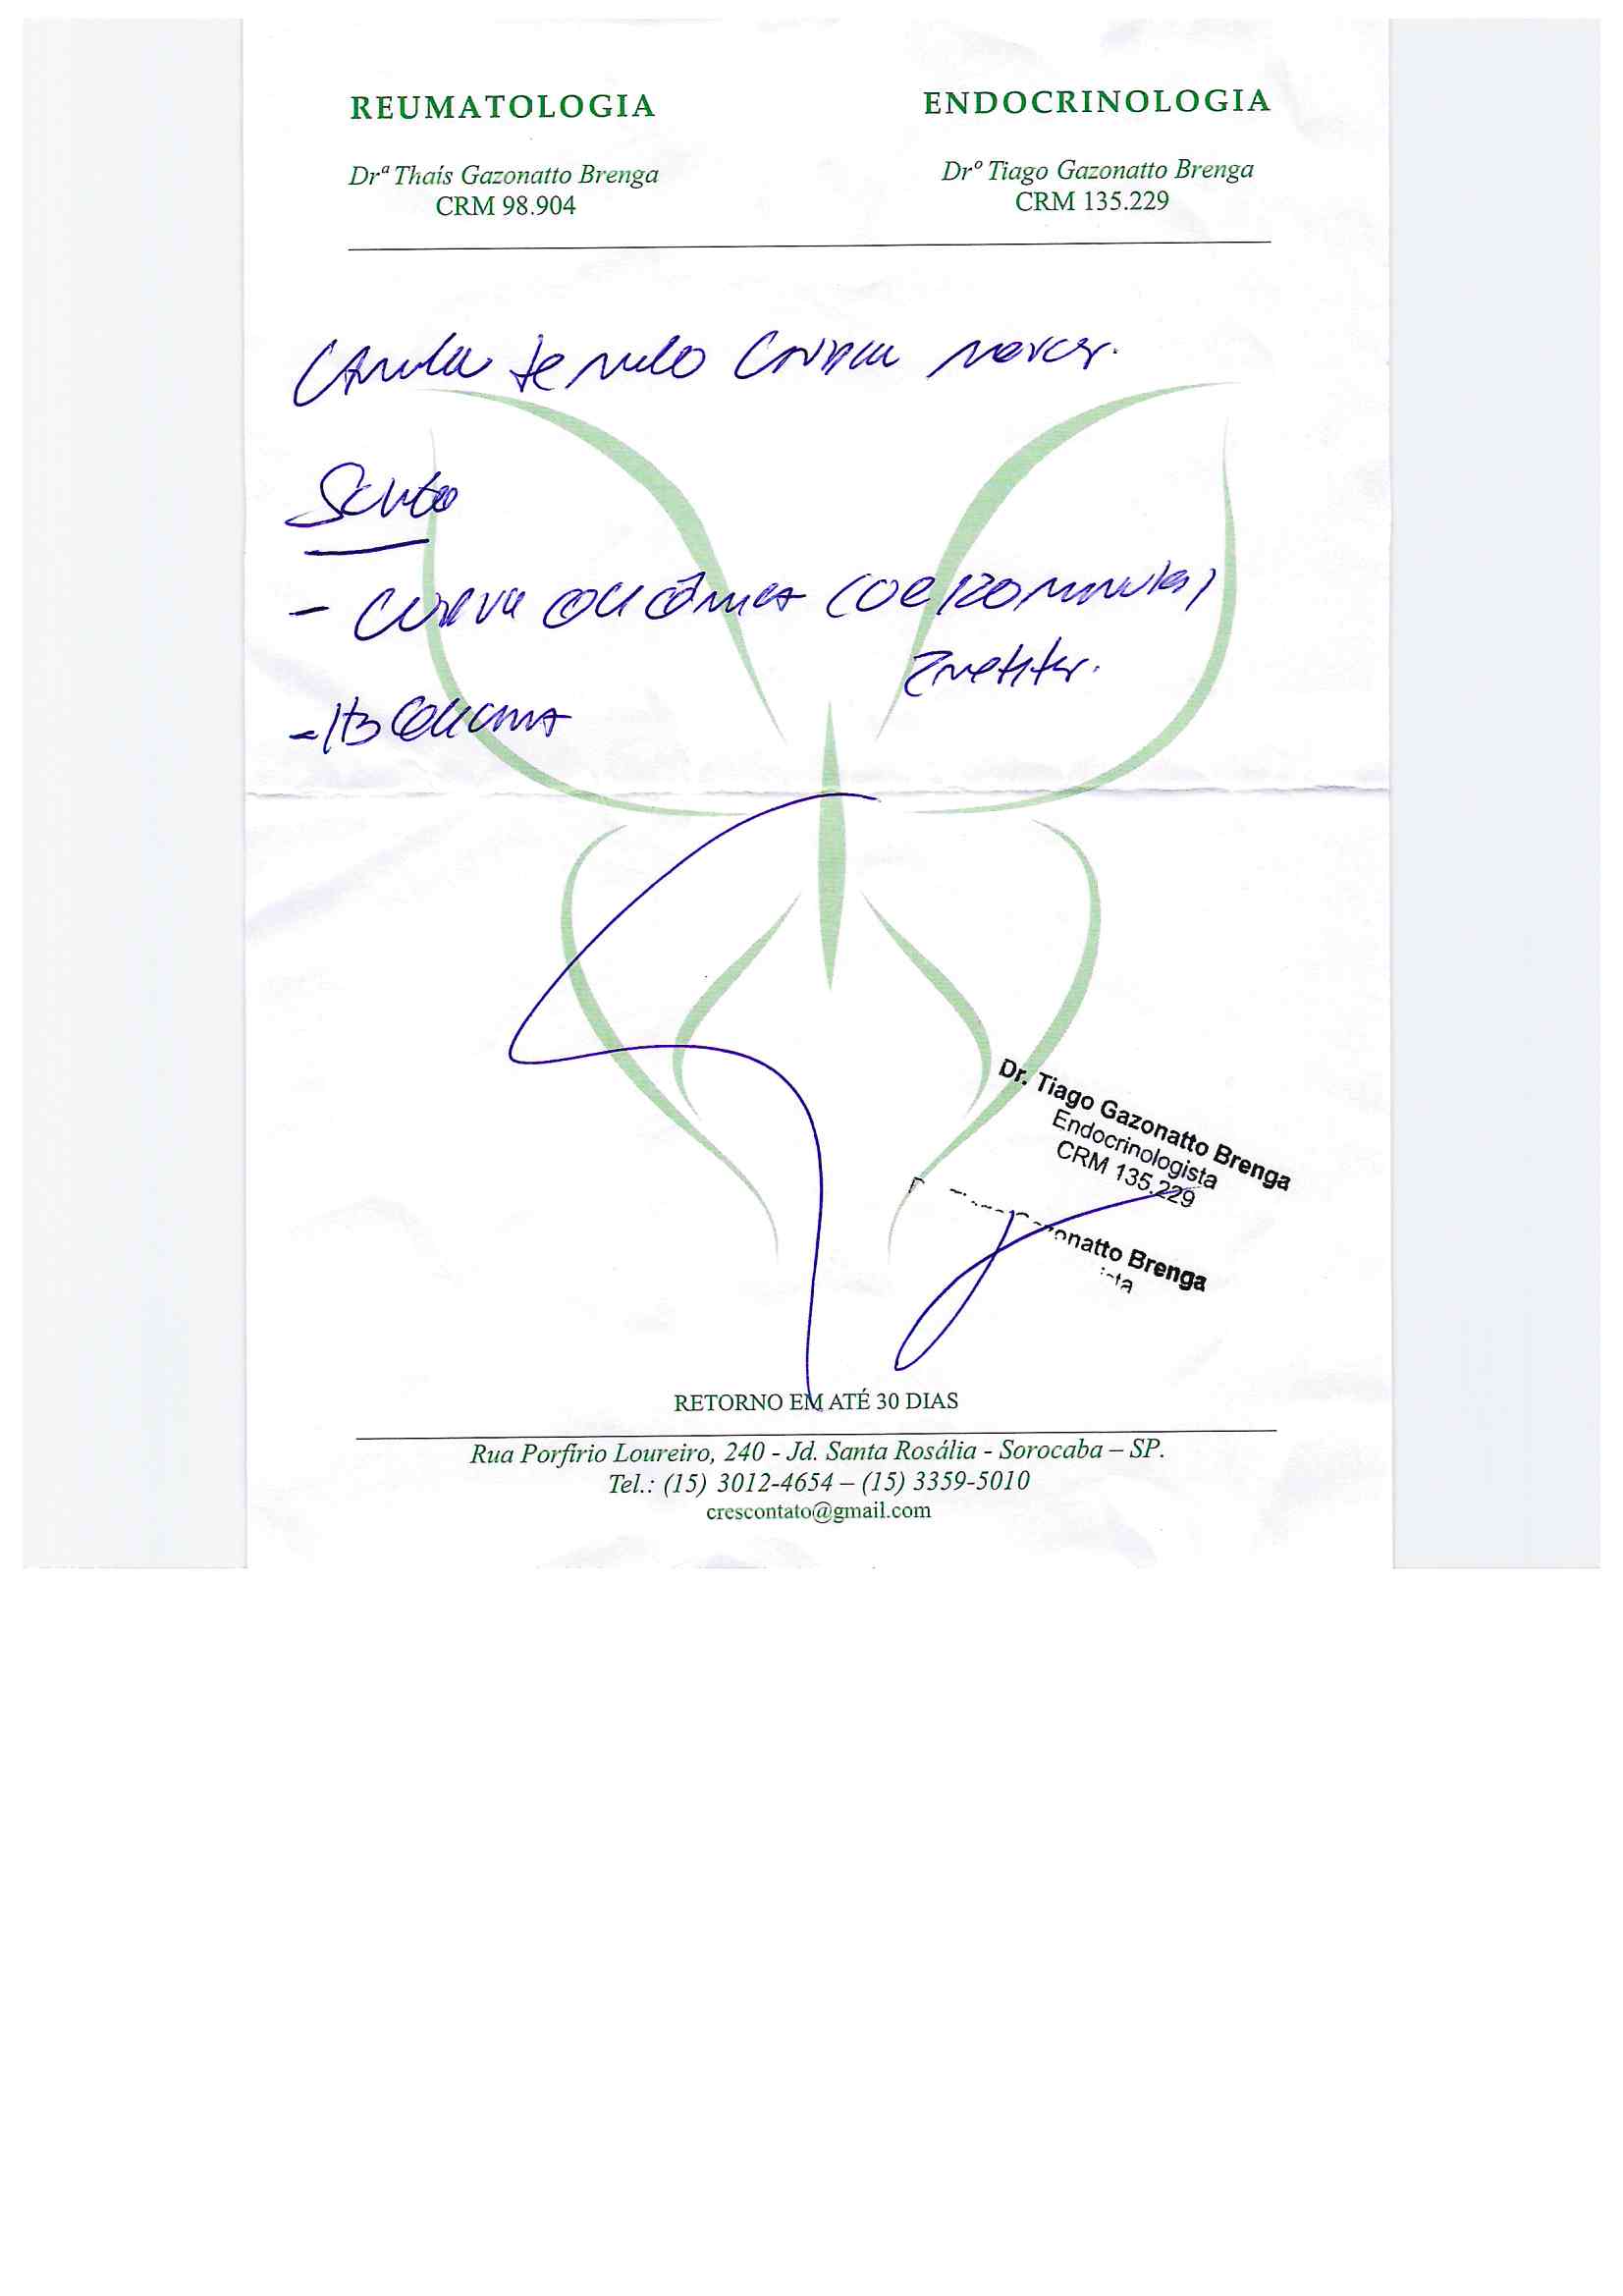 REUMATOLOGIA
Drª Thaís Gazonatto Brenga
CRM 98.904
ENDOCRINOLOGIA
Drº Tiago Gazonatto Brenga
CRM 135.229
de
Solicito
- Curva glicêmica (0 e 120 minutos)
- Hb glicada
Dr. Tiago Gazonatto Brenga
Endocrinologista
CRM 135.229
onatto Brenga
RETORNO EM ATÉ 30 DIAS
Rua Porfírio Loureiro, 240 - Jd. Santa Rosália - Sorocaba – SP.
Tel.: (15) 3012-4654 – (15) 3359-5010
crescontato@gmail.com